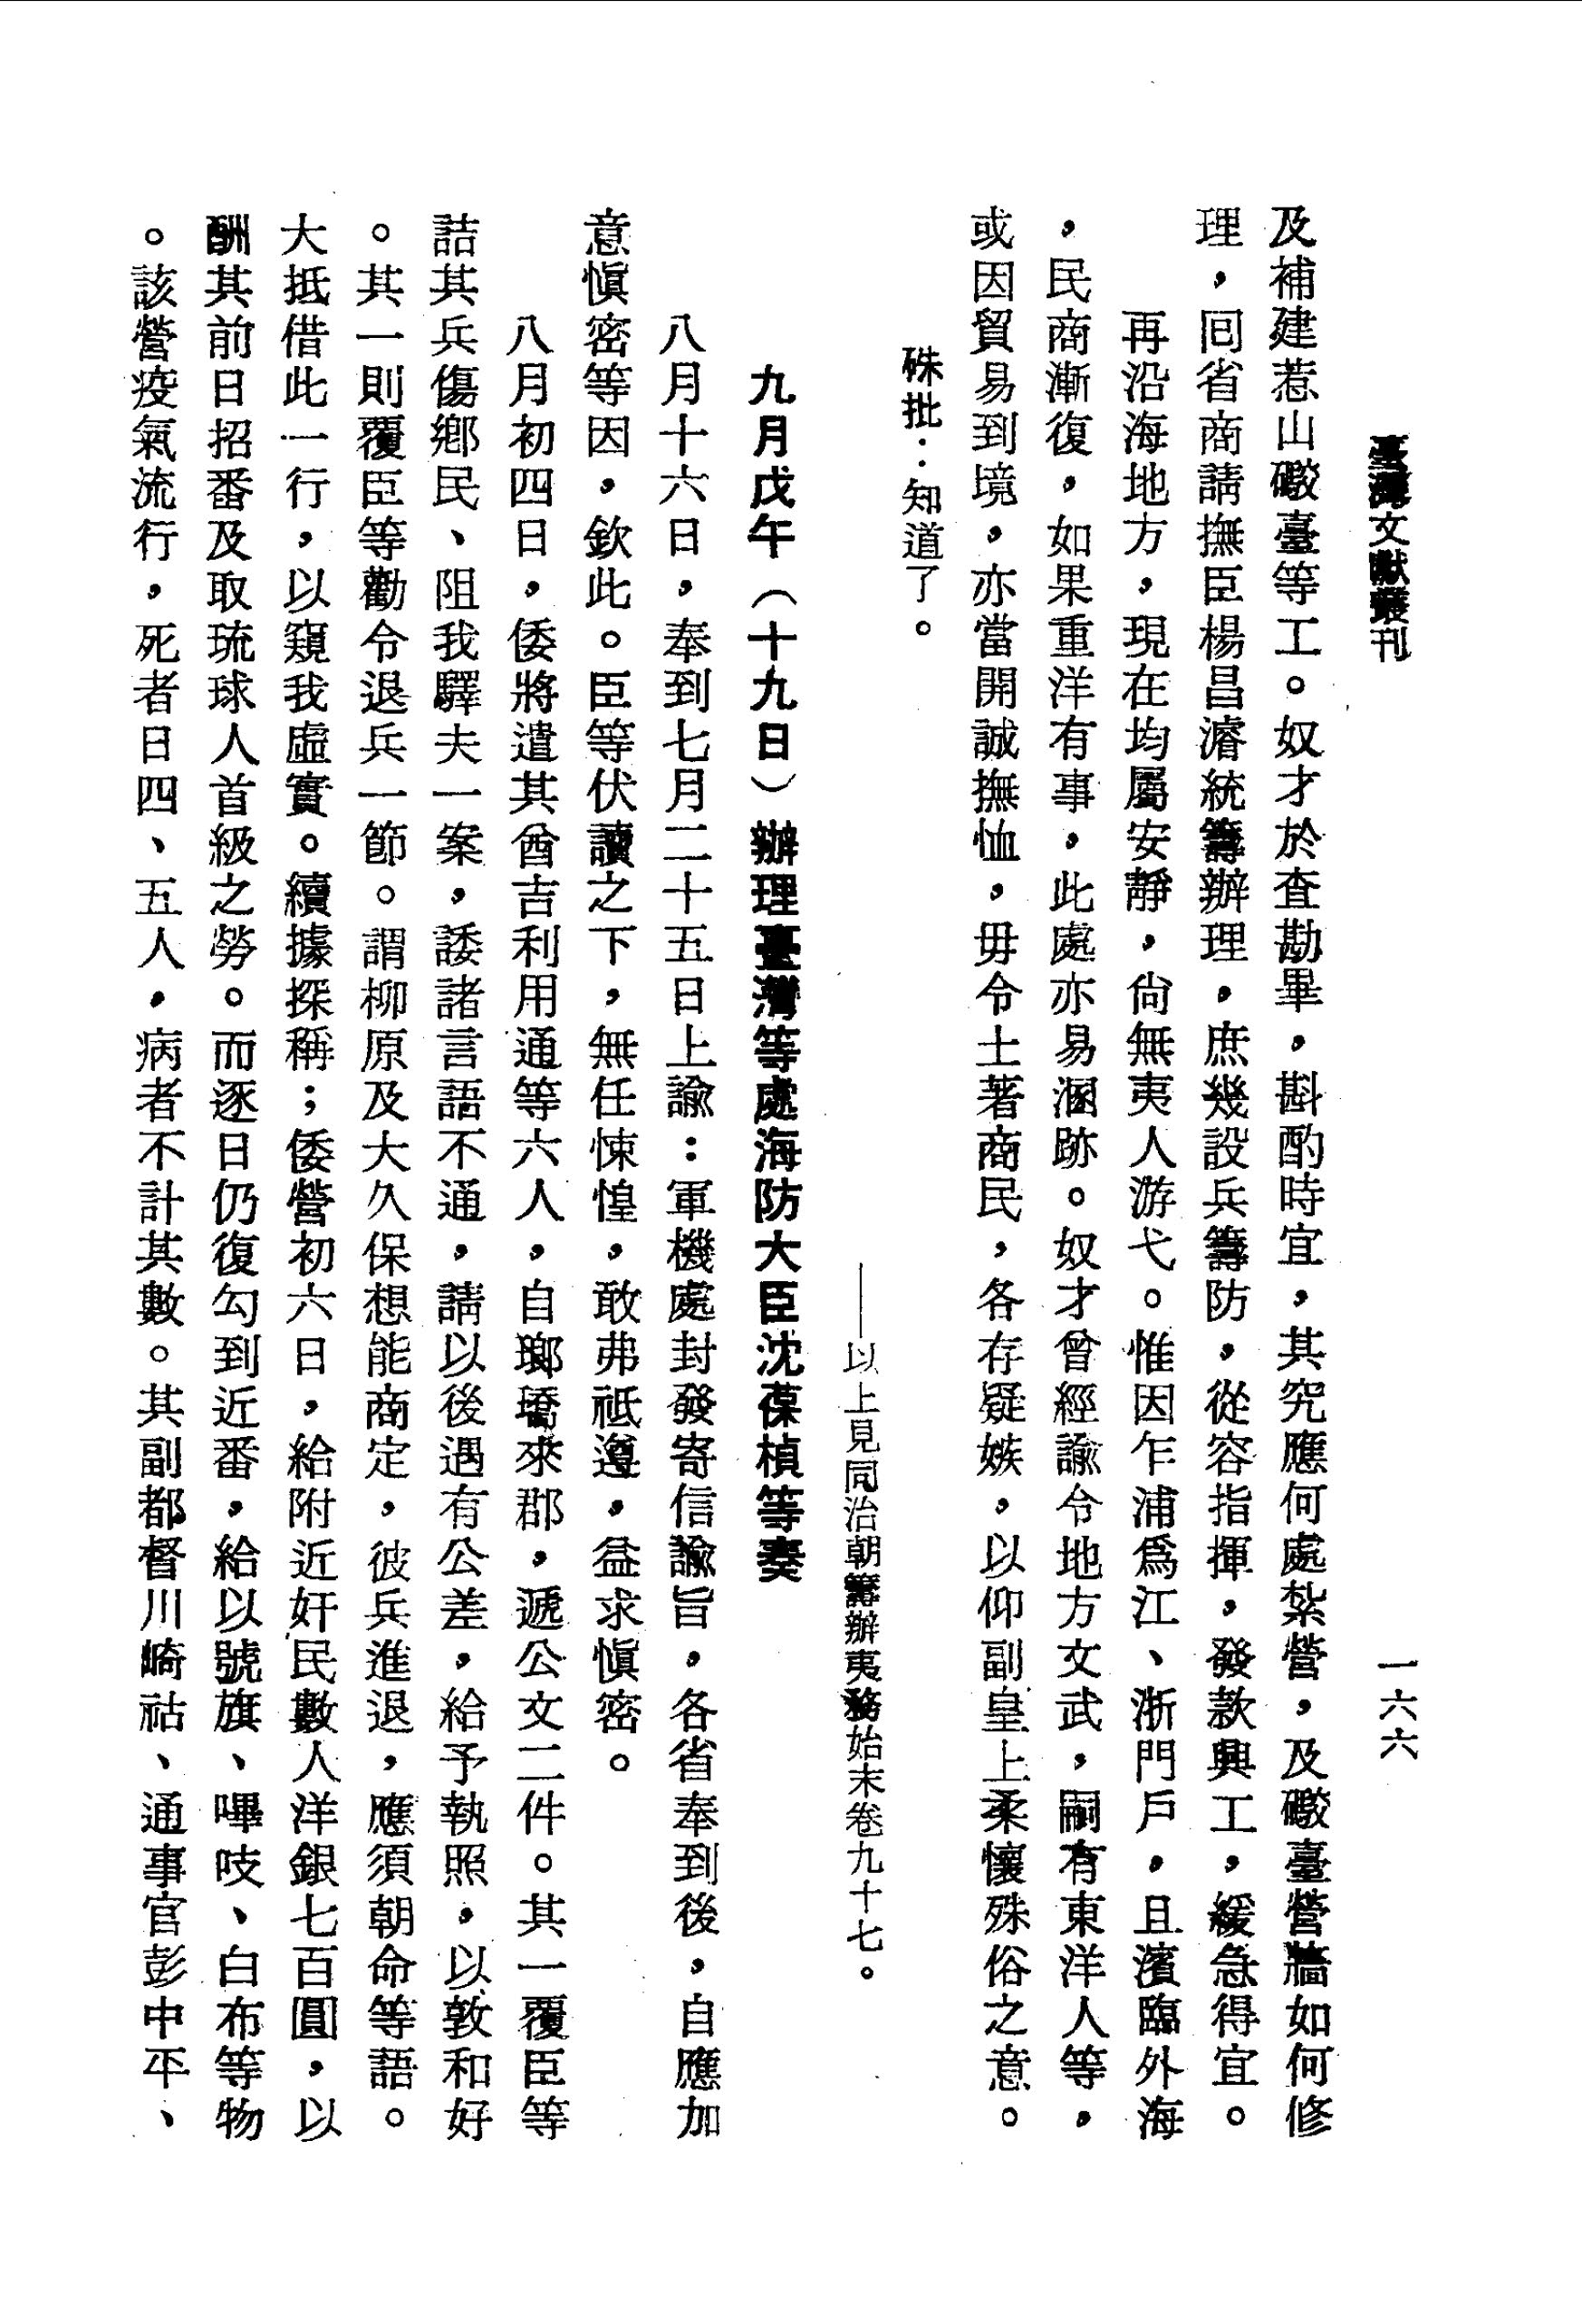 臺灣文獻叢刊
一六六
及補建惹山礮臺等工。奴才於查勘畢，斟酌時宜，其究應何處紮營，及礮臺營牆如何修
理，回省商請撫臣楊昌濬統籌辦理，庶幾設兵籌防，從容指揮，發款興工，緩急得宜。
再沿海地方，現在均屬安靜，尙無夷人游弋。惟因乍浦爲江、浙門戶，且濱臨外海
，民商漸復，如果重洋有事，此處亦易溷跡。奴才曾經諭令地方文武，嗣有東洋人等，
或因貿易到境，亦當開誠撫恤，毋令土著商民，各存疑嫉，以仰副皇上柔懷殊俗之意。
硃批：知道了。
——以上見同治朝籌辦夷務始末卷九十七。
九月戊午（十九日）辦理臺灣等處海防大臣沈葆楨等奏
八月十六日，奉到七月二十五日上諭：軍機處封發寄信諭旨，各省奉到後，自應加
意愼密等因，欽此。臣等伏讀之下，無任悚惶，敢弗祇遵，益求愼密。
八月初四日，倭將遣其酋吉利用通等六人，自瑯𤩝來郡，遞公文二件。其一覆臣等
詰其兵傷鄉民、阻我驛夫一案，諉諸言語不通，請以後遇有公差，給予執照，以敦和好
。其一則覆臣等勸令退兵一節。謂柳原及大久保想能商定，彼兵進退，應須朝命等語。
大抵借此一行，以窺我虛實。續據探稱；倭營初六日，給附近奸民數人洋銀七百圓，以
酬其前日招番及取琉球人首級之勞。而逐日仍復勾到近番，給以號旗、嗶吱、白布等物
。該營疫氣流行，死者日四、五人，病者不計其數。其副都督川崎祜、通事官彭中平、